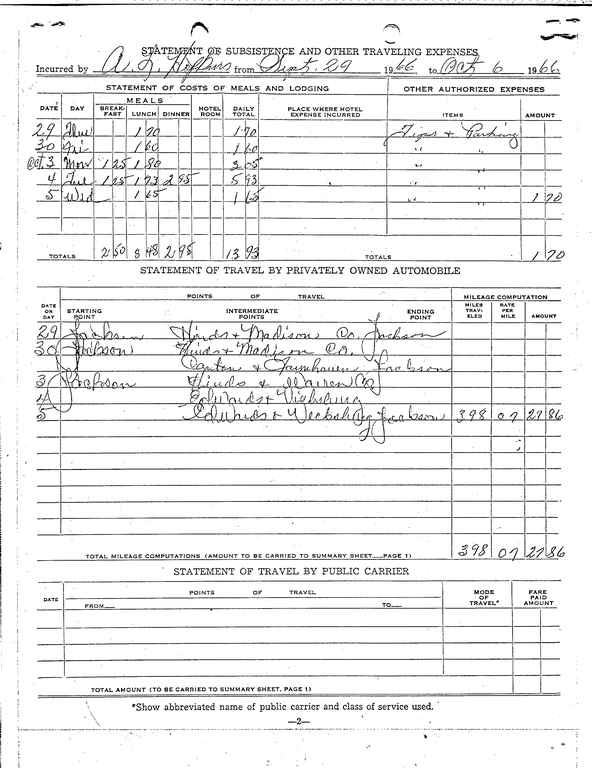 STATEMENT OF SUBSISTENCE AND OTHER TRAVELING EXPENSES
Incurred by A. L. Hopkins from Sept. 29 1966 to Oct 6 1966
STATEMENT OF COSTS OF MEALS AND LODGING OTHER AUTHORIZED EXPENSES
DATE DAY MEALS BREAK-FAST LUNCH DINNER HOTEL ROOM DAILY TOTAL PLACE WHERE HOTEL EXPENSE INCURRED ITEMS AMOUNT
29 Thus 1 70 1 70 Tips & Parking
30 Fri 1 60 1 60 " "
Oct. 3 Mon 1 25 1 80 3 05 " "
4 Tue 1 25 1 73 2 95 5 93 " "
5 Wed 1 65 1 65 " " 1 70
TOTALS 2 50 8 48 2 95 13 93 TOTALS 1 70
STATEMENT OF TRAVEL BY PRIVATELY OWNED AUTOMOBILE
DATE OR DAY POINTS OF TRAVEL STARTING POINT INTERMEDIATE POINTS ENDING POINT MILEAGE COMPUTATION MILES TRAV-ELED RATE PER MILE AMOUNT
29 Jackson Hinds & Madison Co. Jackson
30 Jackson Hinds & Madison Co.
Canton & Jackson
3 Jackson Hinds & Warren Co
4 Edwards & Vicksburg
5 Edwards & Vicksburg Jackson 398 07 27 86
TOTAL MILEAGE COMPUTATIONS (AMOUNT TO BE CARRIED TO SUMMARY SHEET PAGE 1) 398 07 27 86
STATEMENT OF TRAVEL BY PUBLIC CARRIER
DATE POINTS OF TRAVEL FROM TO MODE OF TRAVEL* FARE PAID AMOUNT
TOTAL AMOUNT (TO BE CARRIED TO SUMMARY SHEET, PAGE 1)
*Show abbreviated name of public carrier and class of service used.
—2—